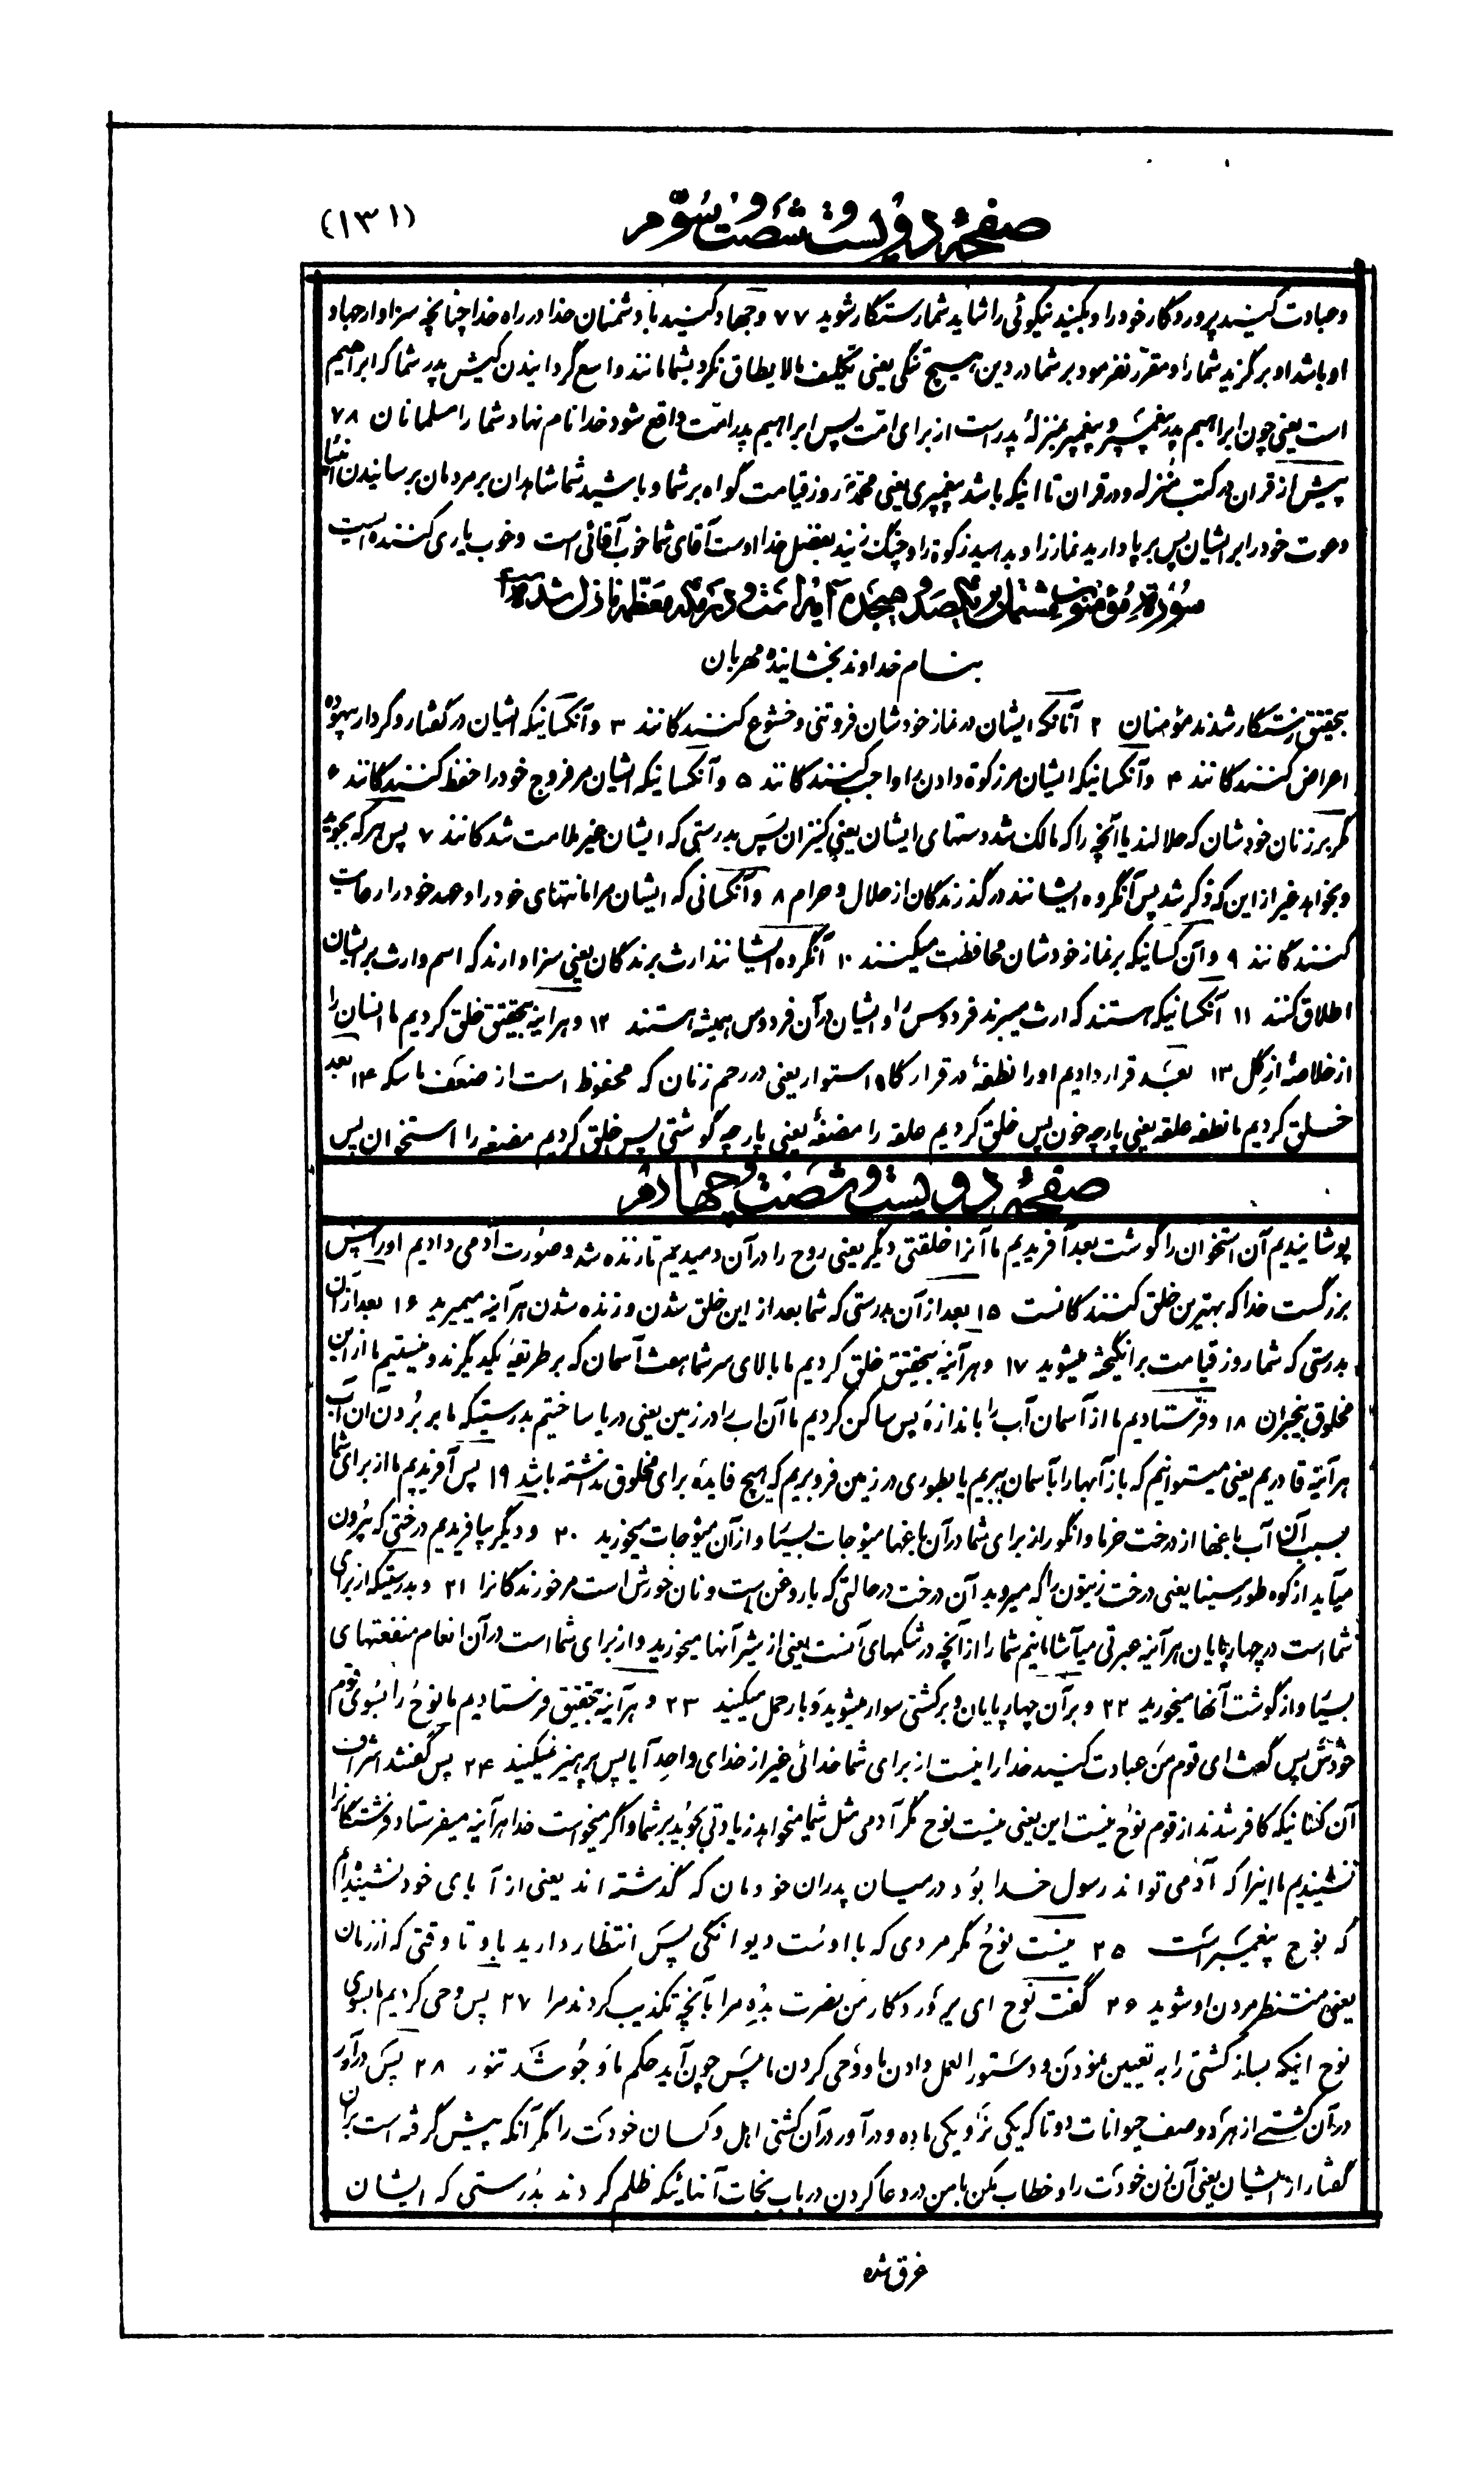 (۱۳۱)
صفحهٔ دویست و شصت و سوّم
و عبادت کنید پروردگار خود را و بکنید نیکوئی را شاید شما رستگار شوید ۷۷ و جهاد کنید با دشمنان خدا در راه خدا چنانچه سزاوار جهاد
او باشد او برگزید شما را و مقرّر نفرمود بر شما در دین هیچ تنگی یعنی تکلیف مالایطاق نکرد بشما مانند واسع گردانیدن کیش پدر شما که ابراهیم
است یعنی چون ابراهیم پدر پیغمبر و پیغمبر بمنزلهٔ پدر است از برای امّت پس ابراهیم پدر امّت واقع شود خدا نام نهاد شما را مسلمانان ۷۸
پیش از قران در کتب منزله و در قران تا اینکه باشد پیغمبری یعنی محمّد روز قیامت گواه بر شما و باشید شما شاهدان بر مردمان برسانیدن انبیا
دعوت خود را بر ایشان پس بر پا دارید نماز را و بدهید زکوة را و چنگ زنید بفضل خدا اوست آقای شما خوب آقائی است و خوب یاری کننده است
سورهٔ مؤمنون مشتمل بر یکصد و هیجده آیه است و در مکّه معظّمه نازل شده است
بنام خداوند بخشایندهٔ مهربان
بتحقیق رستگار شدند مؤمنان ۲ آنانکه ایشان در نماز خودشان فروتنی و خشوع کنندگانند ۳ و آنکسانیکه ایشان در گفتار و کردار بیهوده
اعراض کنندگانند ۴ و آنکسانیکه ایشان مر زکوة دادن را واجب کنندگانند ۵ و آنکسانیکه ایشان مر فروج خود را حفظ کنندگانند ۶
مگر بر زنان خودشان که حلالند یا آنچه را که مالک شد دستهای ایشان یعنی کنیزان پس بدرستی که ایشان غیر ملامت شدگانند ۷ پس هر که بجوید
و بخواهد غیر از این که ذکر شد پس آنگروه ایشانند در گذرندگان از حلال و حرام ۸ و آنکسانی که ایشان مر امانتهای خود را و عهد خود را رعایت
کنندگانند ۹ و آن کسانیکه بر نماز خودشان محافظت میکنند ۱۰ آنگروه ایشانند ارث برندگان یعنی سزاوارند که اسم وارث بر ایشان
اطلاق کنند ۱۱ آنکسانیکه هستند که ارث میبرند فردوس را و ایشان در آن فردوس همیشه هستند ۱۲ و هر آینه بتحقیق خلق کردیم ما انسان را
از خلاصهٔ از گل ۱۳ بعد قرار دادیم او را نطفهٔ در قرارگاه استوار یعنی در رحم زنان که محفوظ است از ضعف ماسکه ۱۴ بعد
خلق کردیم ما نطفه علقه یعنی پارچه خون پس خلق کردیم علقه را مضغهٔ یعنی پارچه گوشتی پس خلق کردیم مضغه را استخوان پس
صفحهٔ دویست و شصت و چهارم
پوشانیدیم آن استخوان را گوشت بعد آفریدیم ما آنرا خلقتی دیگر یعنی روح را در آن دمیدیم تا زنده شد و صورت آدمی دادیم او را پس
بزرگست خدا که بهترین خلق کنندگانست ۱۵ بعد از آن بدرستی که شما بعد از این خلق شدن و زنده شدن هر آینه میمیرید ۱۶ بعد از آن
بدرستی که شما روز قیامت برانگیخته میشوید ۱۷ و هر آینه بتحقیق خلق کردیم ما بالای سر شما هفت آسمان که بر طریقهٔ یکدیگرند و نیستیم ما از این
مخلوق بیخبران ۱۸ و فرستادیم ما از آسمان آب را باندازهٔ پس ساکن کردیم ما آن اب را در زمین یعنی دریا ساختیم بدرستیکه ما بر بردن آن آب
هر آینه قادریم یعنی میتوانیم که باز آبها را بآسمان ببریم یا بطوری در زمین فرو بریم که هیچ فایدهٔ برای مخلوق نداشته باشد ۱۹ پس آفریدیم ما از برای شما
بسبب آن آب باغها از درخت خرما و انگور از برای شما در آن باغها میوجات بسیار و از آن میوجات میخورید ۲۰ و دیگر بیافریدیم درختی که بیرون
میآید از کوه طور سینا یعنی درخت زیتون را که میروید آن درخت در حالتی که با روغن است و نان خورش است مر خورندگانرا ۲۱ و بدرستیکه از برای
شما است در چهارپایان هر آینه عبرتی میآشامانیم شما را از آنچه در شکمهای آنست یعنی از شیر آنها میخورید و از برای شما است در آن انعام منفعتهای
بسیار و از گوشت آنها میخورید ۲۲ و بر آن چهارپایان و بر کشتی سوار میشوید و بار حمل میکنید ۲۳ و هر آینه بتحقیق فرستادیم ما نوح را بسوی قوم
خودش پس گفت ای قوم من عبادت کنید خدا را نیست از برای شما خدائی غیر از خدای واحد آیا پس پرهیز نمیکنید ۲۴ پس گفتند اشراف
آن کسانیکه کافر شدند از قوم نوح نیست این یعنی نیست نوح مگر آدمی مثل شما میخواهد زیادتی بجوید بر شما و اگر میخواست خدا هر آینه میفرستاد فرشتگانرا
نشنیدیم ما اینرا که آدمی تواند رسول خدا بود در میان پدران خودمان که گذشته اند یعنی از آبای خود نشنیده‌ایم
که نوح پیغمبر است ۲۵ نیست نوح مگر مردی که با اوست دیوانگی پس انتظار دارید باو تا وقتی که از زمان
یعنی منتظر مردن او شوید ۲۶ گفت نوح ای پروردگار من نصرت بده مرا بآنچه تکذیب کردند مرا ۲۷ پس وحی کردیم ما بسوی
نوح اینکه بساز کشتی را به تعیین نمودن و دستورالعمل دادن ما و وحی کردن ما پس چون آید حکم ما و جوشد تنور ۲۸ پس درآور
در آن کشتی از هر دو صنف حیوانات دو تا که یکی نر و یکی ماده و درآور در آن کشتی اهل و کسان خودت را مگر آنکه پیش گرفته است بر آن
گفتار از ایشان یعنی آن زن خودت را و خطاب مکن با من در دعا کردن در باب نجات آنانیکه ظلم کردند بدرستی که ایشان
غرق شده